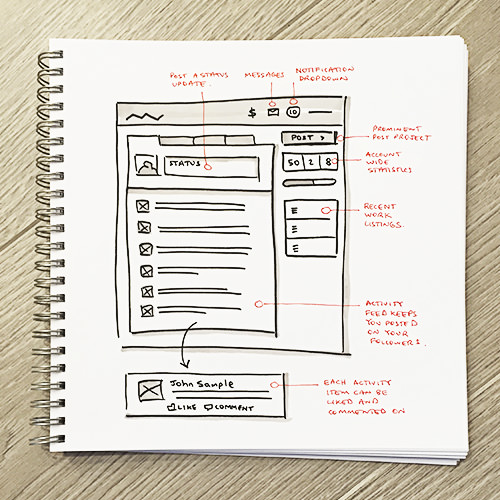 POST A STATUS
UPDATE.
MESSAGES
NOTIFICATION
DROPDOWN
$
10
POST >
PROMINENT
POST PROJECT
STATUS
50 2 8
ACCOUNT
WIDE
STATISTICS
RECENT
WORK
LISTINGS.
ACTIVITY
FEED KEEPS
YOU POSTED
ON YOUR
FOLLOWERS.
John Sample
LIKE COMMENT
EACH ACTIVITY
ITEM CAN BE
LIKED AND
COMMENTED ON